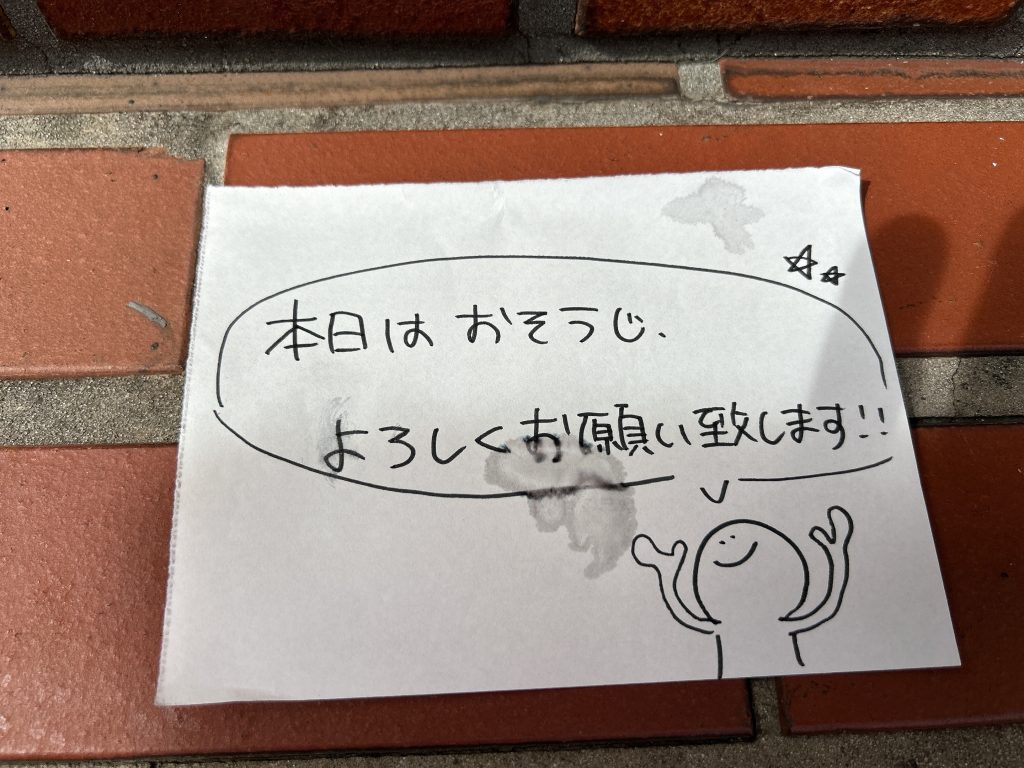 本日は おそうじ、
よろしくお願い致します!!